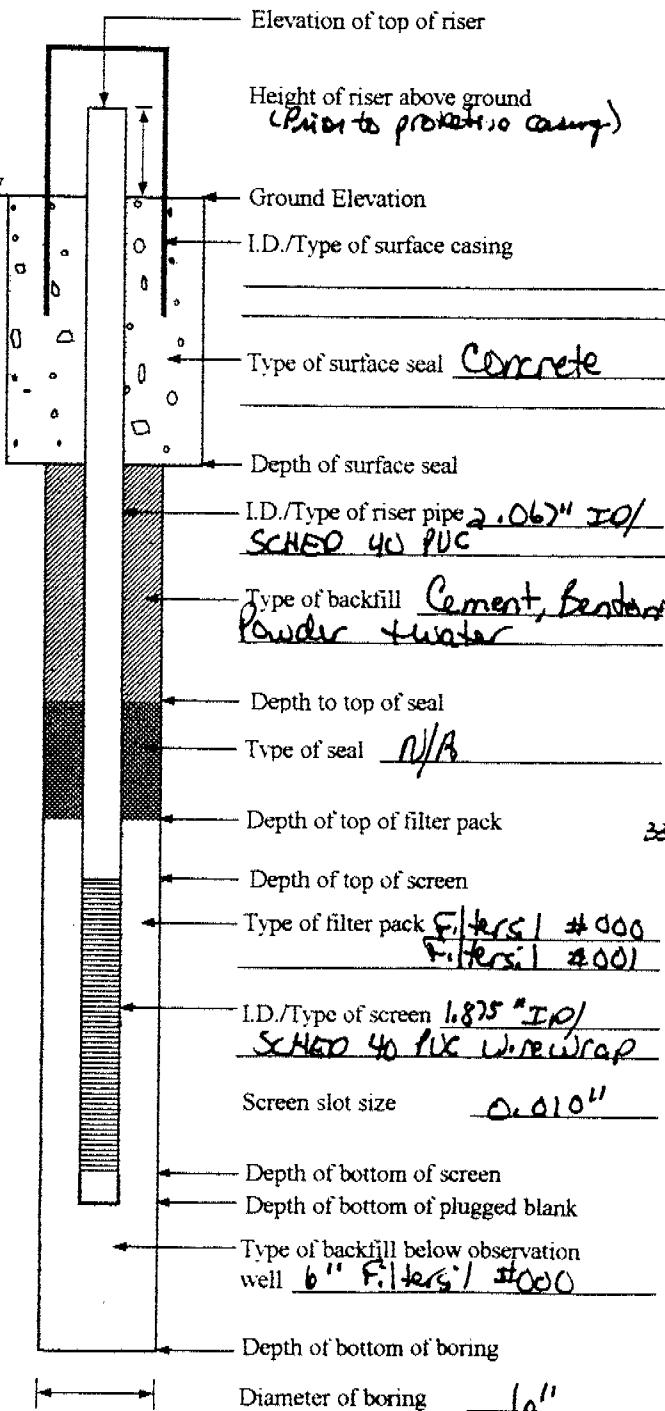 Elevation of top of riser
Height of riser above ground
(Prior to protective casing)
Ground Elevation
I.D./Type of surface casing
Type of surface seal Concrete
Depth of surface seal
I.D./Type of riser pipe 2.067" ID/
SCHED 40 PVC
Type of backfill Cement,
Powder + water
Depth to top of seal
Type of seal N/A
Depth of top of filter pack
Depth of top of screen
Type of filter pack Filtersil #000
Filtersil #001
I.D./Type of screen 1.875" ID/
SCHED 40 PVC Wire Wrap
Screen slot size 0.010"
Depth of bottom of screen
Depth of bottom of plugged blank
Type of backfill below observation
well 6" Filtersil #000
Depth of bottom of boring
Diameter of boring